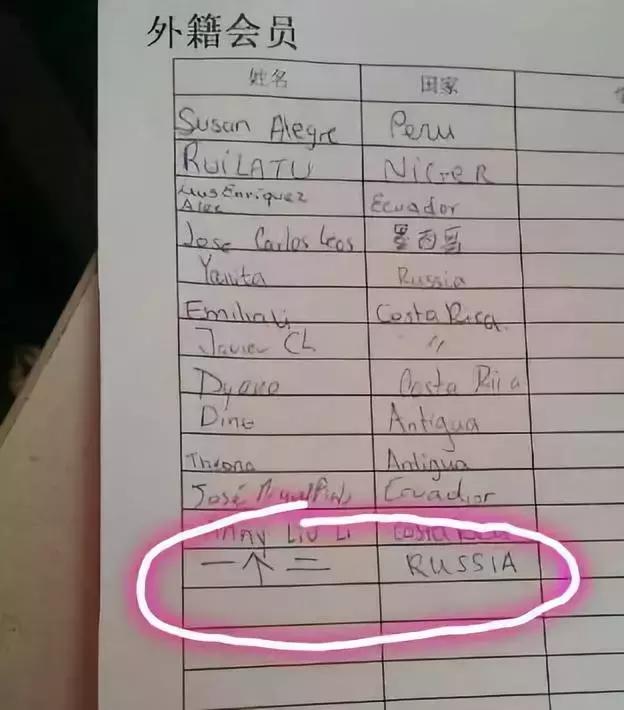 外籍会员
姓名 国家
Susan Alegre Peru
RUiLATU NiGeR
Enriquez
Alec Ecuador
Jose Carlos Leos 墨西哥
Yanita Russia
Emiliali Costa Rica.
Javier CL "
Costa Rica
Dine Antigua
Antigua
José Ecuador
Liu Li Costa Rica
一个二 RUSSIA